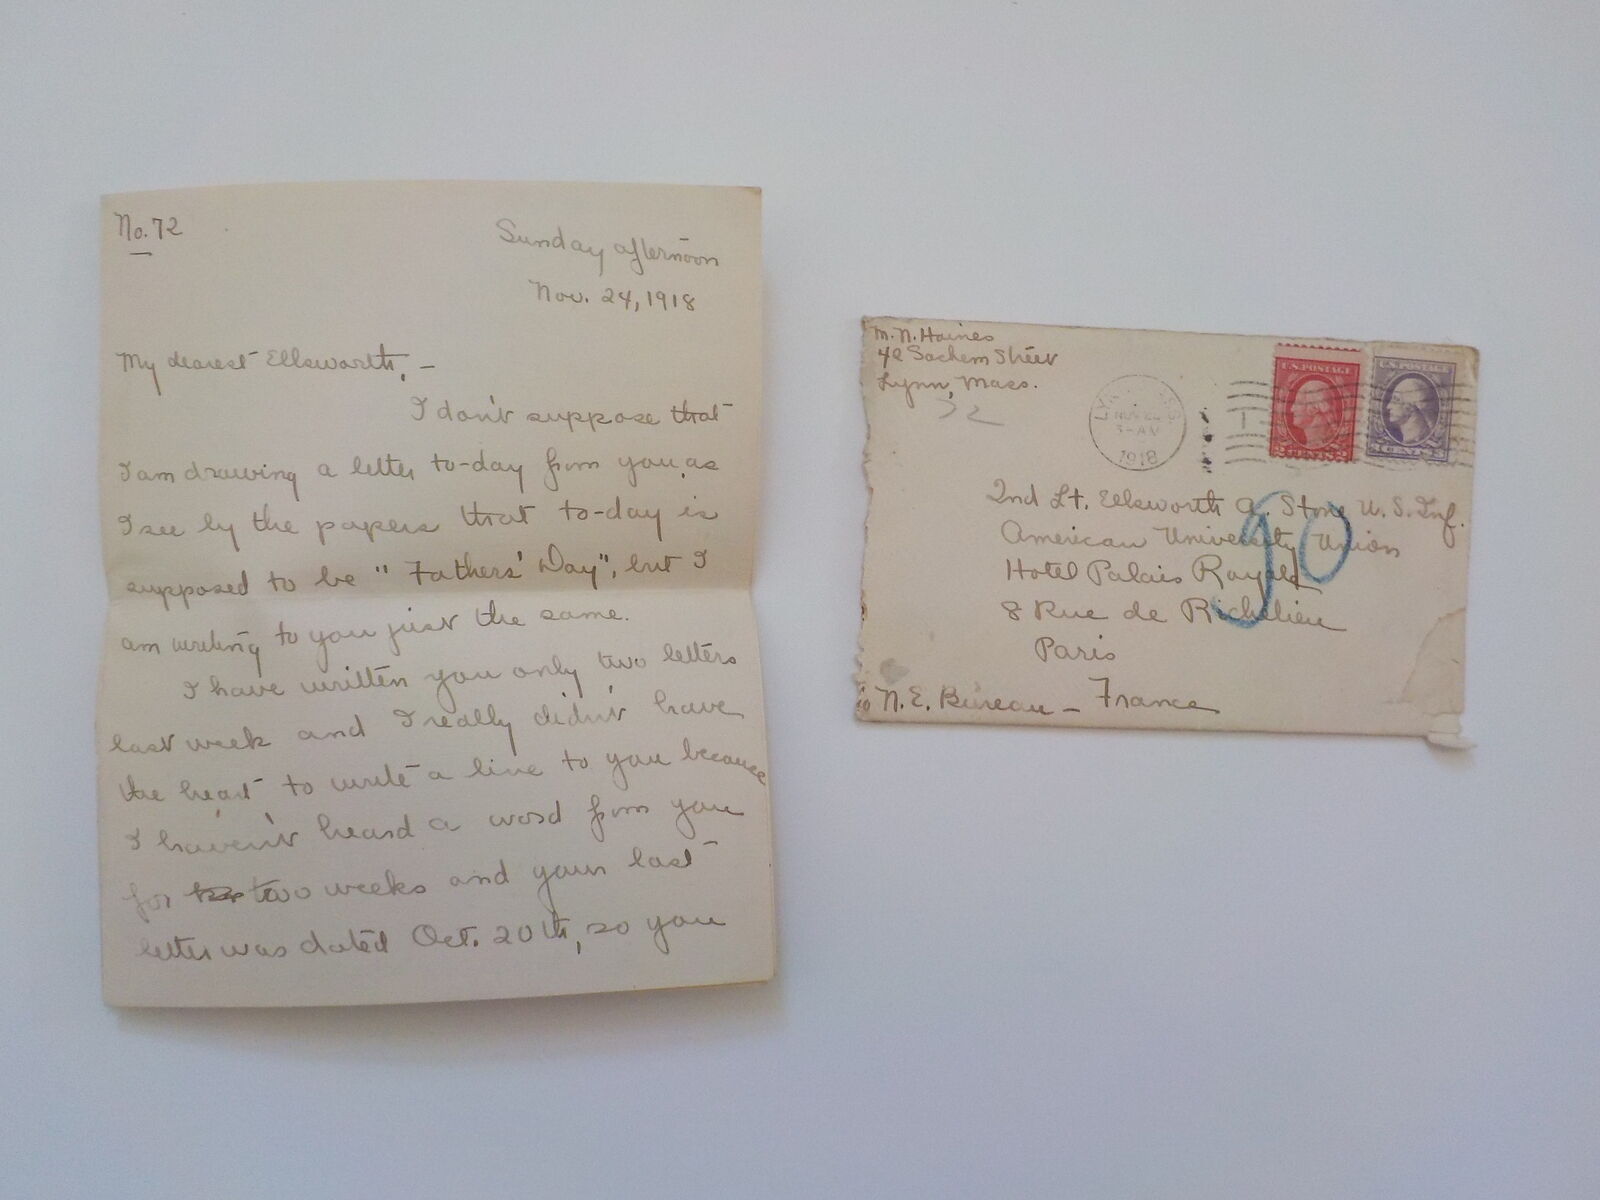 No. 72
Sunday afternoon
Nov. 24, 1918
My dearest Ellsworth, –
I don't suppose that
I am drawing a letter to-day from you as
I see by the papers that to-day is
supposed to be "Fathers' Day", but I
am writing to you just the same.
I have written you only two letters
last week and I really didn't have
the heart to write a line to you because
I haven't heard a word from you
for two weeks and your last
letter was dated Oct. 20th, so you
M. N. Haines
42 Sachem Street
Lynn, Mass.
72
LYNN MASS
NOV
3-AM
1918
U.S. POSTAGE
2 CENTS 2
U.S. POSTAGE
CENTS 3
2nd Lt. Ellsworth A. Stone U. S. Inf.
American University Union
Hotel Palais Royal
8 Rue de Richelieu
Paris
France
N. E. Bureau –
90